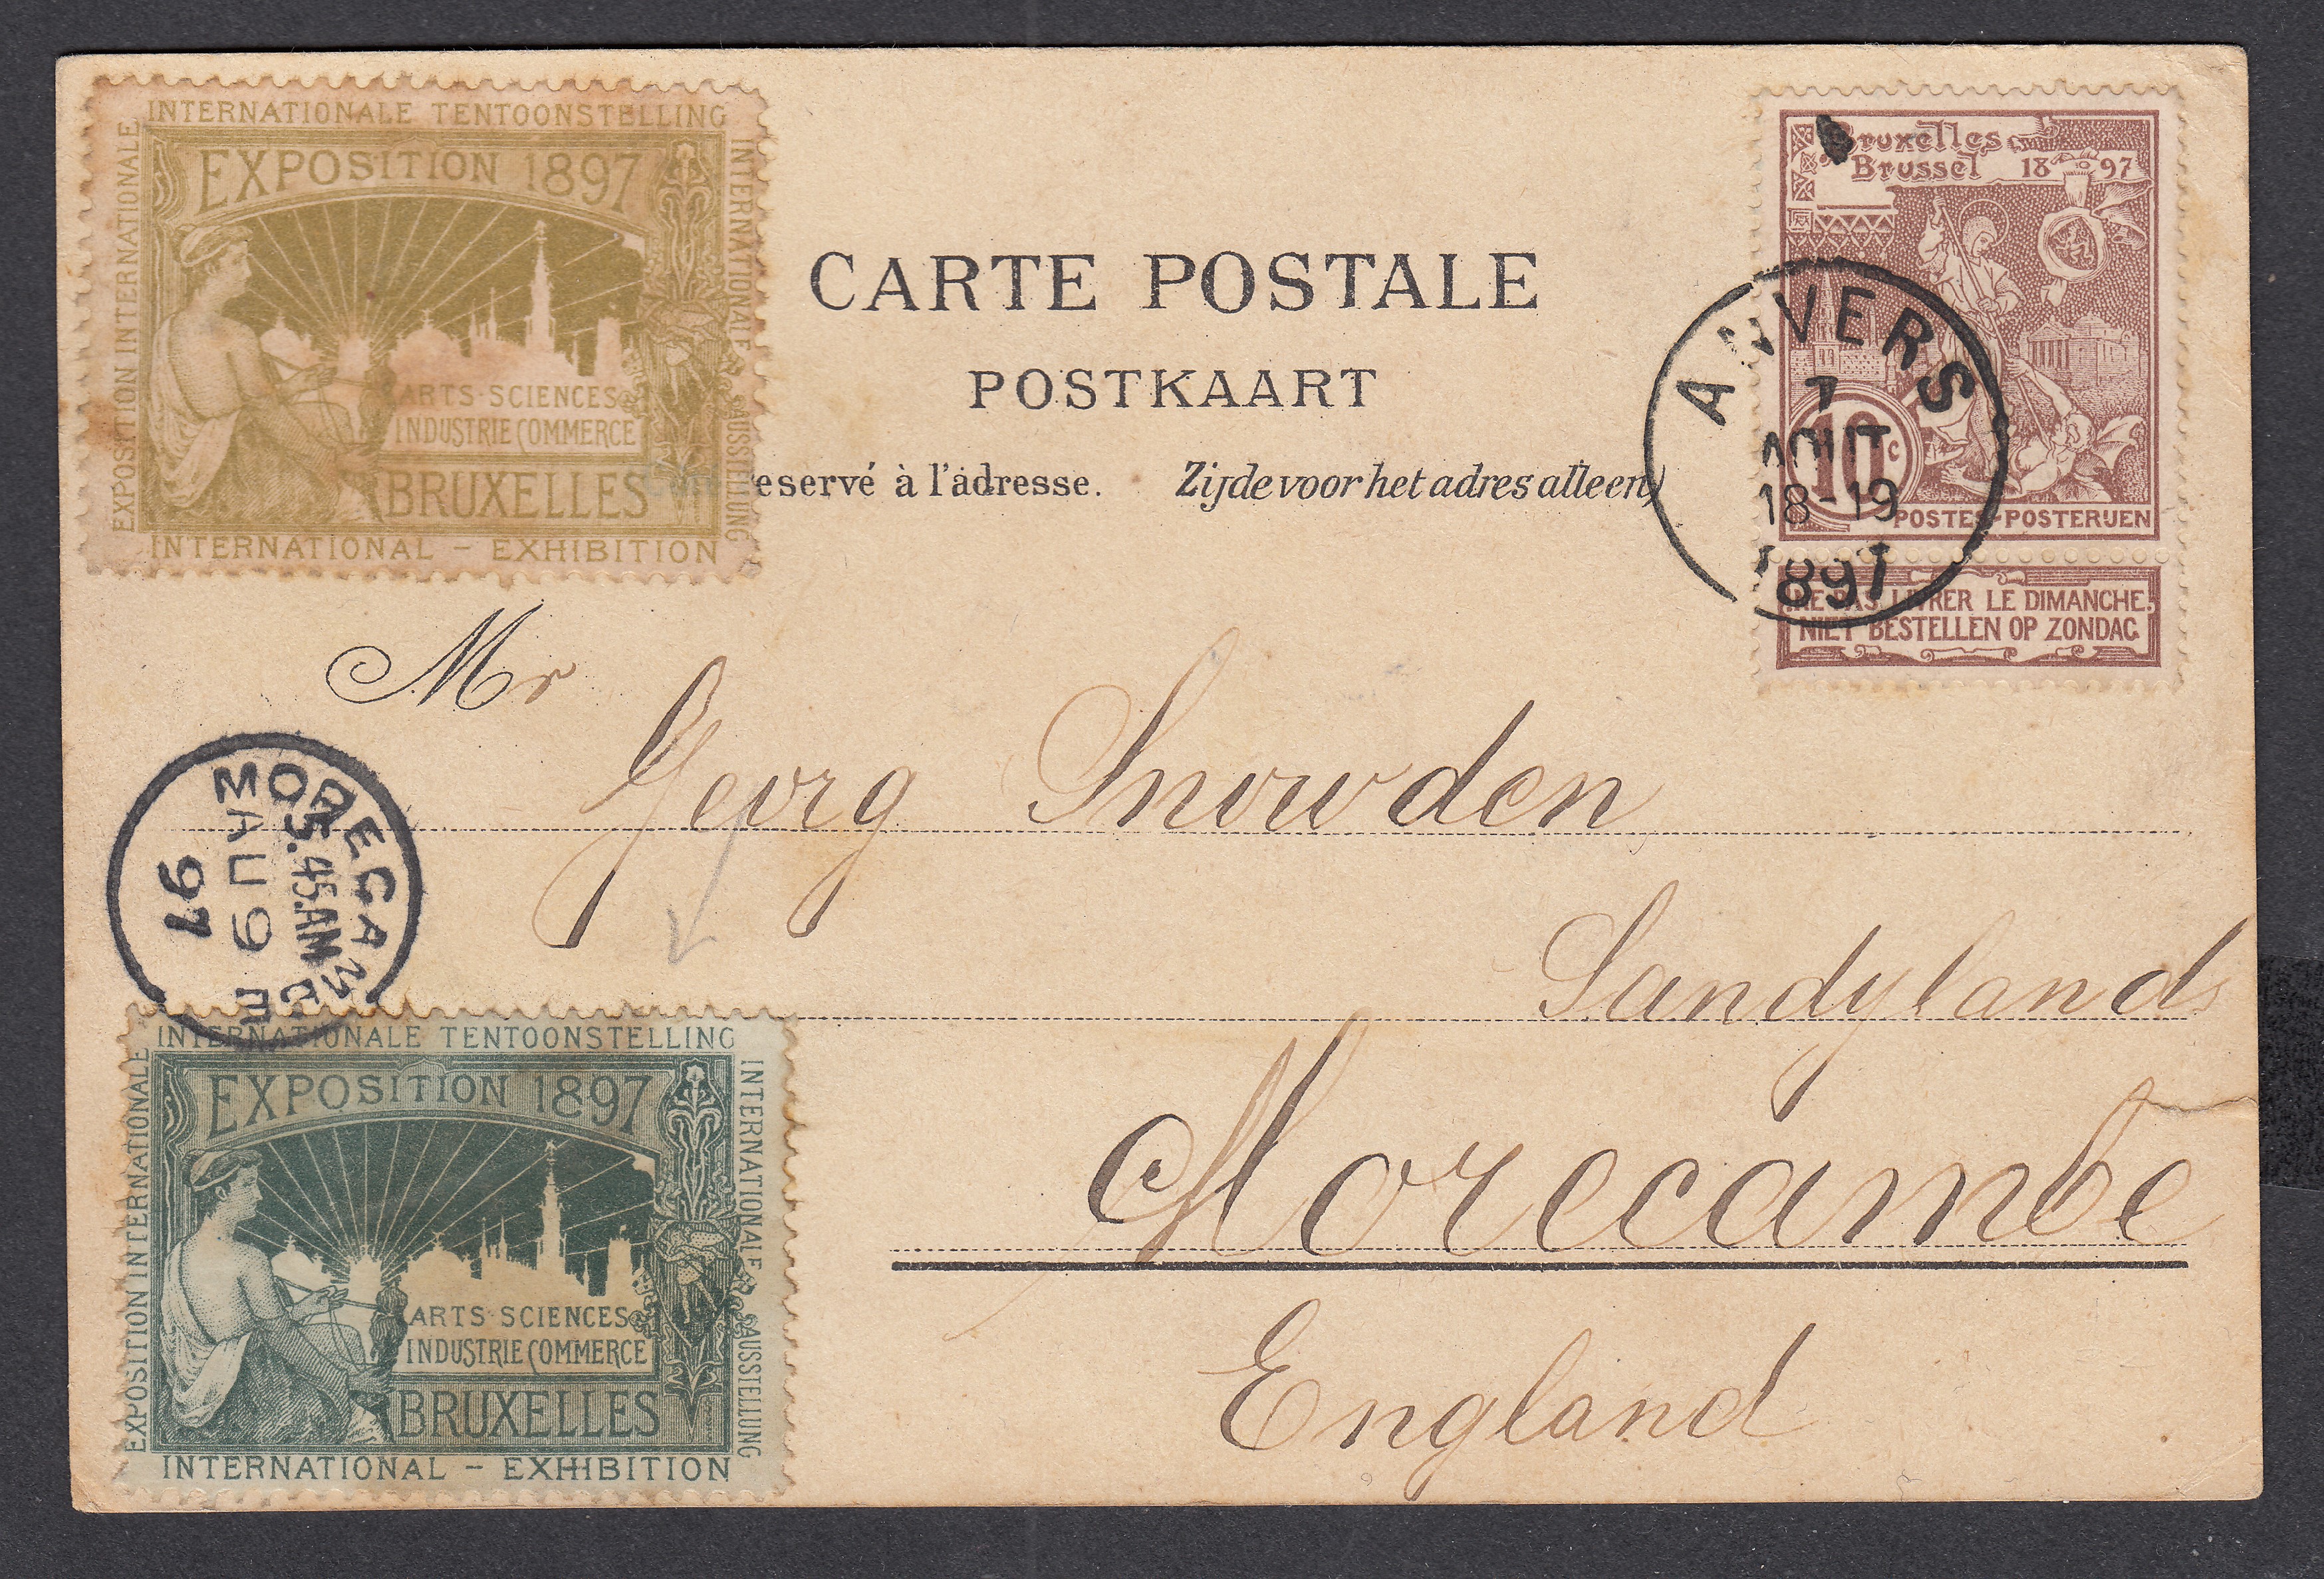 INTERNATIONALE TENTOONSTELLING
EXPOSITION INTERNATIONALE
EXPOSITION 1897
ARTS·SCIENCES
INDUSTRIE COMMERCE
BRUXELLES
INTERNATIONALE AUSSTELLUNG
INTERNATIONAL – EXHIBITION
CARTE POSTALE
POSTKAART
eservé à l'adresse. Zijde voor het adres alleen)
Bruxelles
Brussel 1897
10c
POSTES-POSTERIJEN
NE PAS LIVRER LE DIMANCHE.
NIET BESTELLEN OP ZONDAG
ANVERS
7
AOUT
18-19
1897
Mr
Georg Snowden
Sandylands
Morecambe
England
5.45AM
AU 9
97
INTERNATIONALE TENTOONSTELLING
EXPOSITION INTERNATIONALE
EXPOSITION 1897
ARTS·SCIENCES
INDUSTRIE COMMERCE
BRUXELLES
INTERNATIONALE AUSSTELLUNG
INTERNATIONAL – EXHIBITION